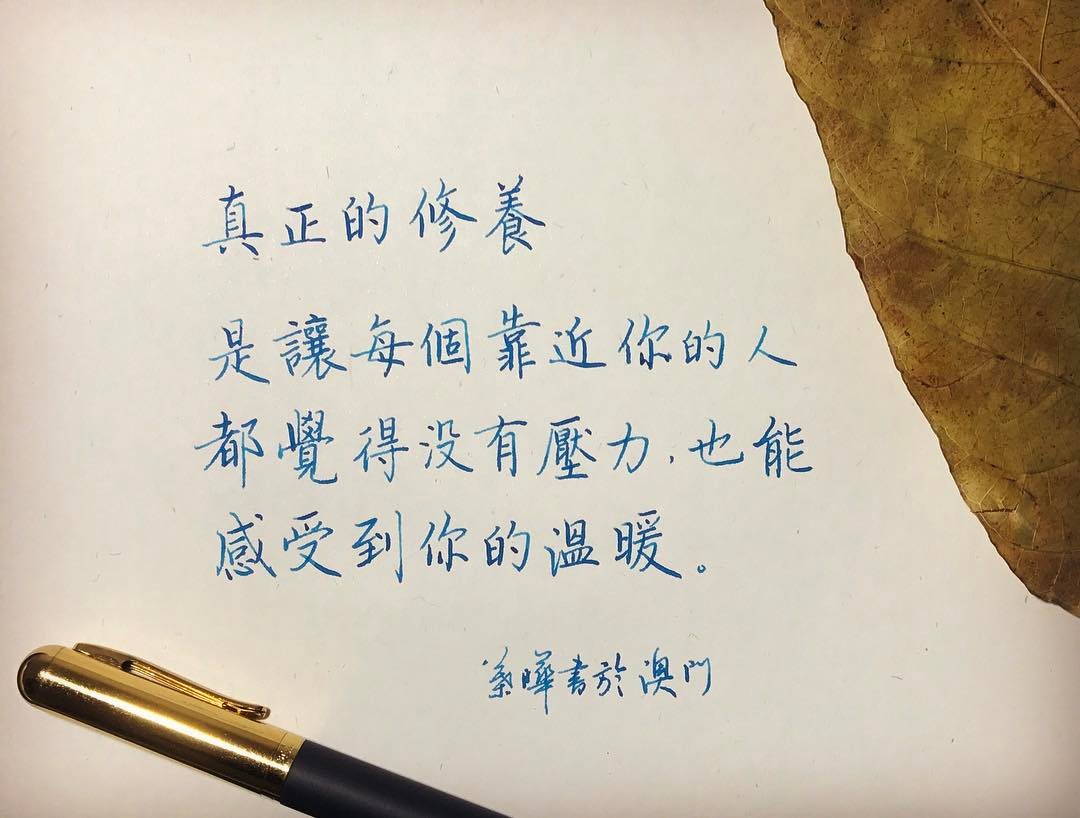 真正的修養
是讓每個靠近你的人
都覺得没有壓力,也能
感受到你的溫暖。
蔡曄書於澳門